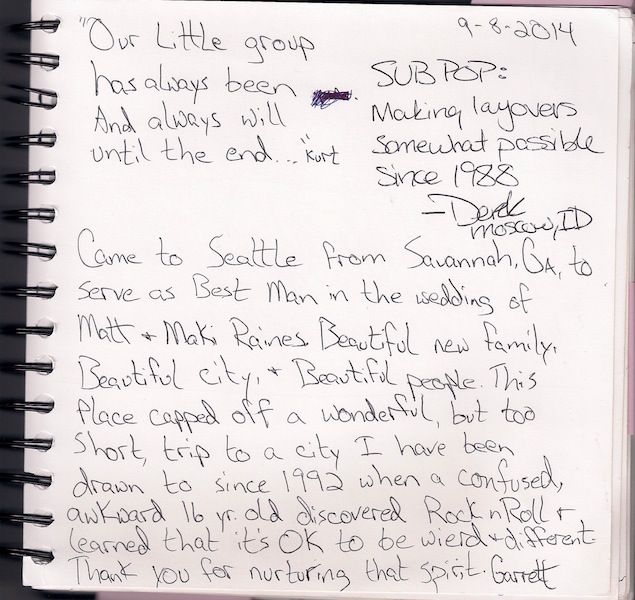 "Our Little group
has always been
And always will
until the end..." Kurt
9-8-2014
SUB POP:
Making layovers
somewhat possible
since 1988
-Derek
Moscow, ID
Came to Seattle from Savannah, GA, to
serve as Best Man in the wedding of
Matt + Maki Raines. Beautiful new family,
Beautiful city, + Beautiful people. This
Place capped off a wonderful, but too
short, trip to a city I have been
drawn to since 1992 when a confused,
awkward 16 yr. old discovered Rock n Roll +
learned that it's OK to be wierd + different.
Thank you for nurturing that spirit. Garrett